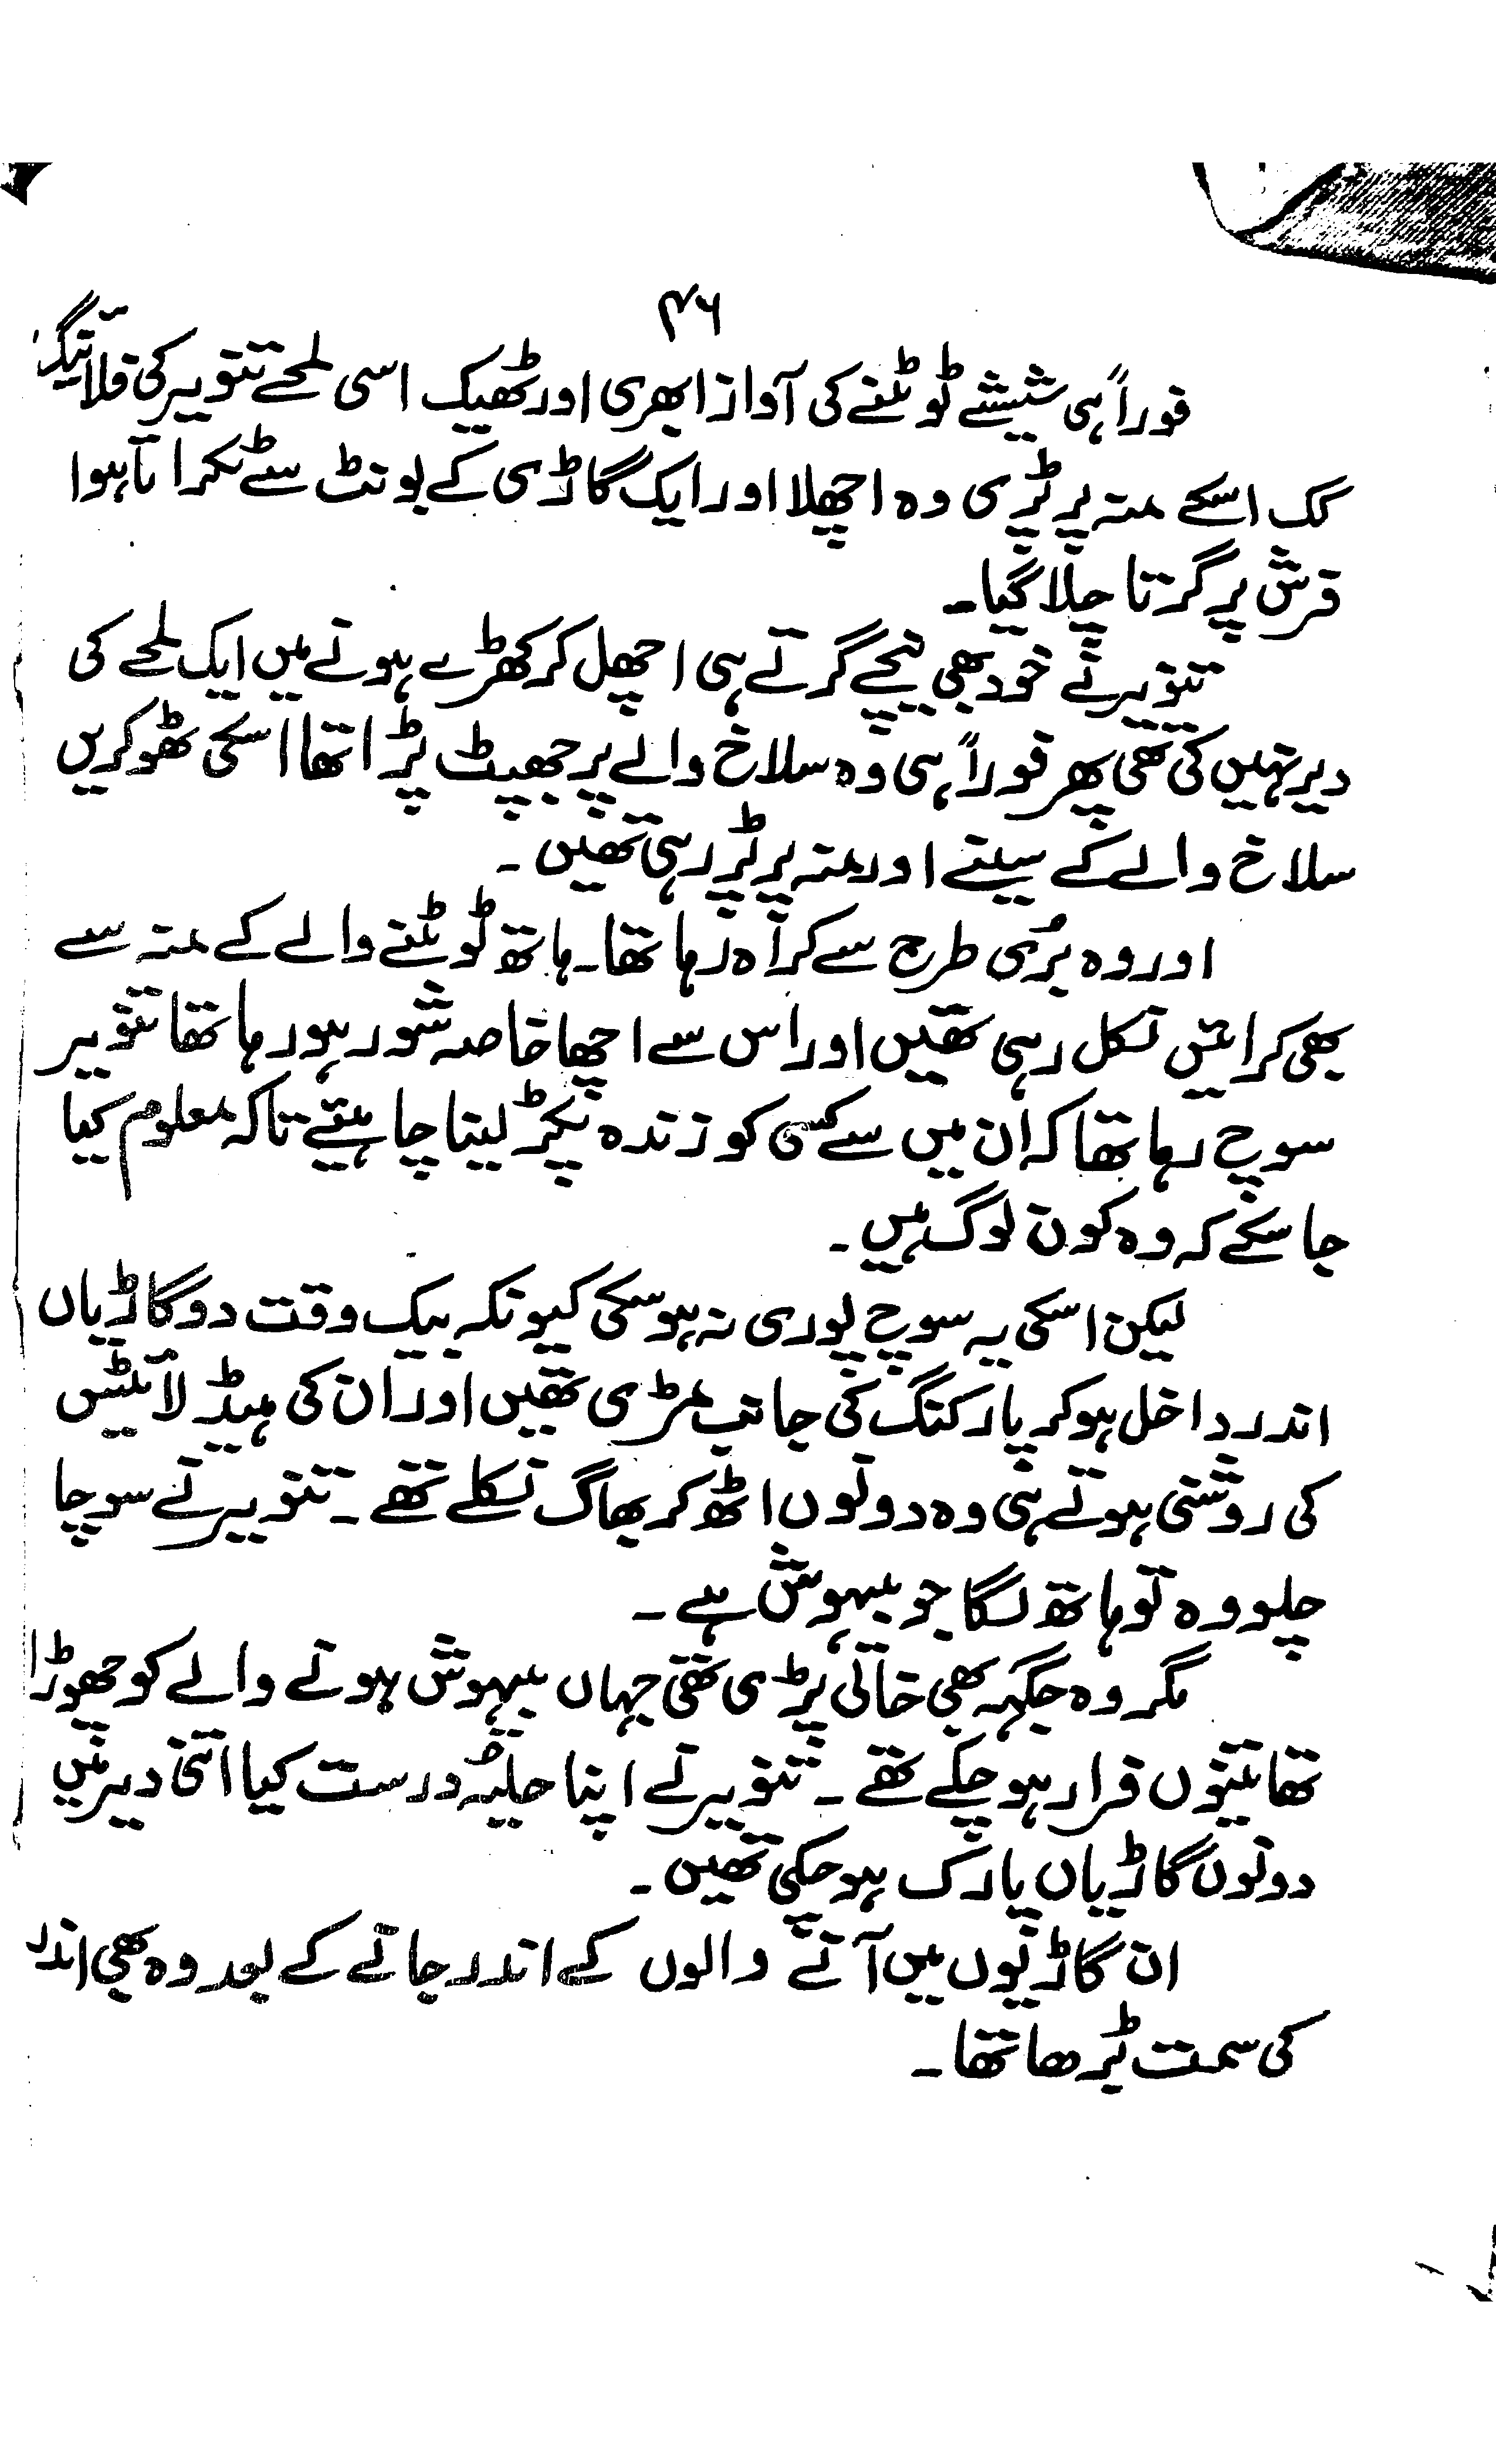 ۴۶
فوراً ہی شیشے ٹوٹنے کی آواز ابھری اور ٹھیک اسی لمحے تنویر کی فلائنگ
کک اسکے منہ پر پڑی وہ اچھلا اور ایک گاڑی کے بونٹ سے ٹکراتا ہوا
فرش پر گرتا چلا گیا۔
تنویر نے خود بھی نیچے گرتے ہی اچھل کر کھڑے ہونے میں ایک لمحے کی
دیر نہیں کی تھی پھر فوراً ہی وہ سلاخ والے پر جھپٹ پڑا تھا اسکی ٹھوکریں
سلاخ والے کے سینے اور منہ پر پڑ رہی تھیں۔
اور وہ بُری طرح سے کراہ رہا تھا۔ ہاتھ ٹوٹنے والے کے منہ سے
بھی کراہیں نکل رہی تھیں اور اس سے اچھا خاصہ شور ہو رہا تھا تنویر
سوچ رہا تھا کہ ان میں سے کسی کو زندہ پکڑ لینا چاہئیے تاکہ معلوم کیا
جا سکے کہ وہ کون لوگ ہیں۔
لیکن اسکی یہ سوچ پوری نہ ہو سکی کیونکہ بیک وقت دو گاڑیاں
اندر داخل ہو کر پارکنگ کی جانب مڑی تھیں اور ان کی ہیڈ لائٹس
کی روشنی ہوتے ہی وہ دونوں اٹھ کر بھاگ نکلے تھے۔ تنویر نے سوچا
چلو وہ تو ہاتھ لگا جو بیہوش ہے۔
مگر وہ جگہہ بھی خالی پڑی تھی جہاں بیہوش ہونے والے کو چھوڑا
تھا تینوں فرار ہو چکے تھے۔ تنویر نے اپنا حلیہ درست کیا اتنی دیر میں
دونوں گاڑیاں پارک ہو چکی تھیں۔
ان گاڑیوں میں آنے والوں کے اندر جانے کے بعد وہ بھی اندر
کی سمت بڑھا تھا۔